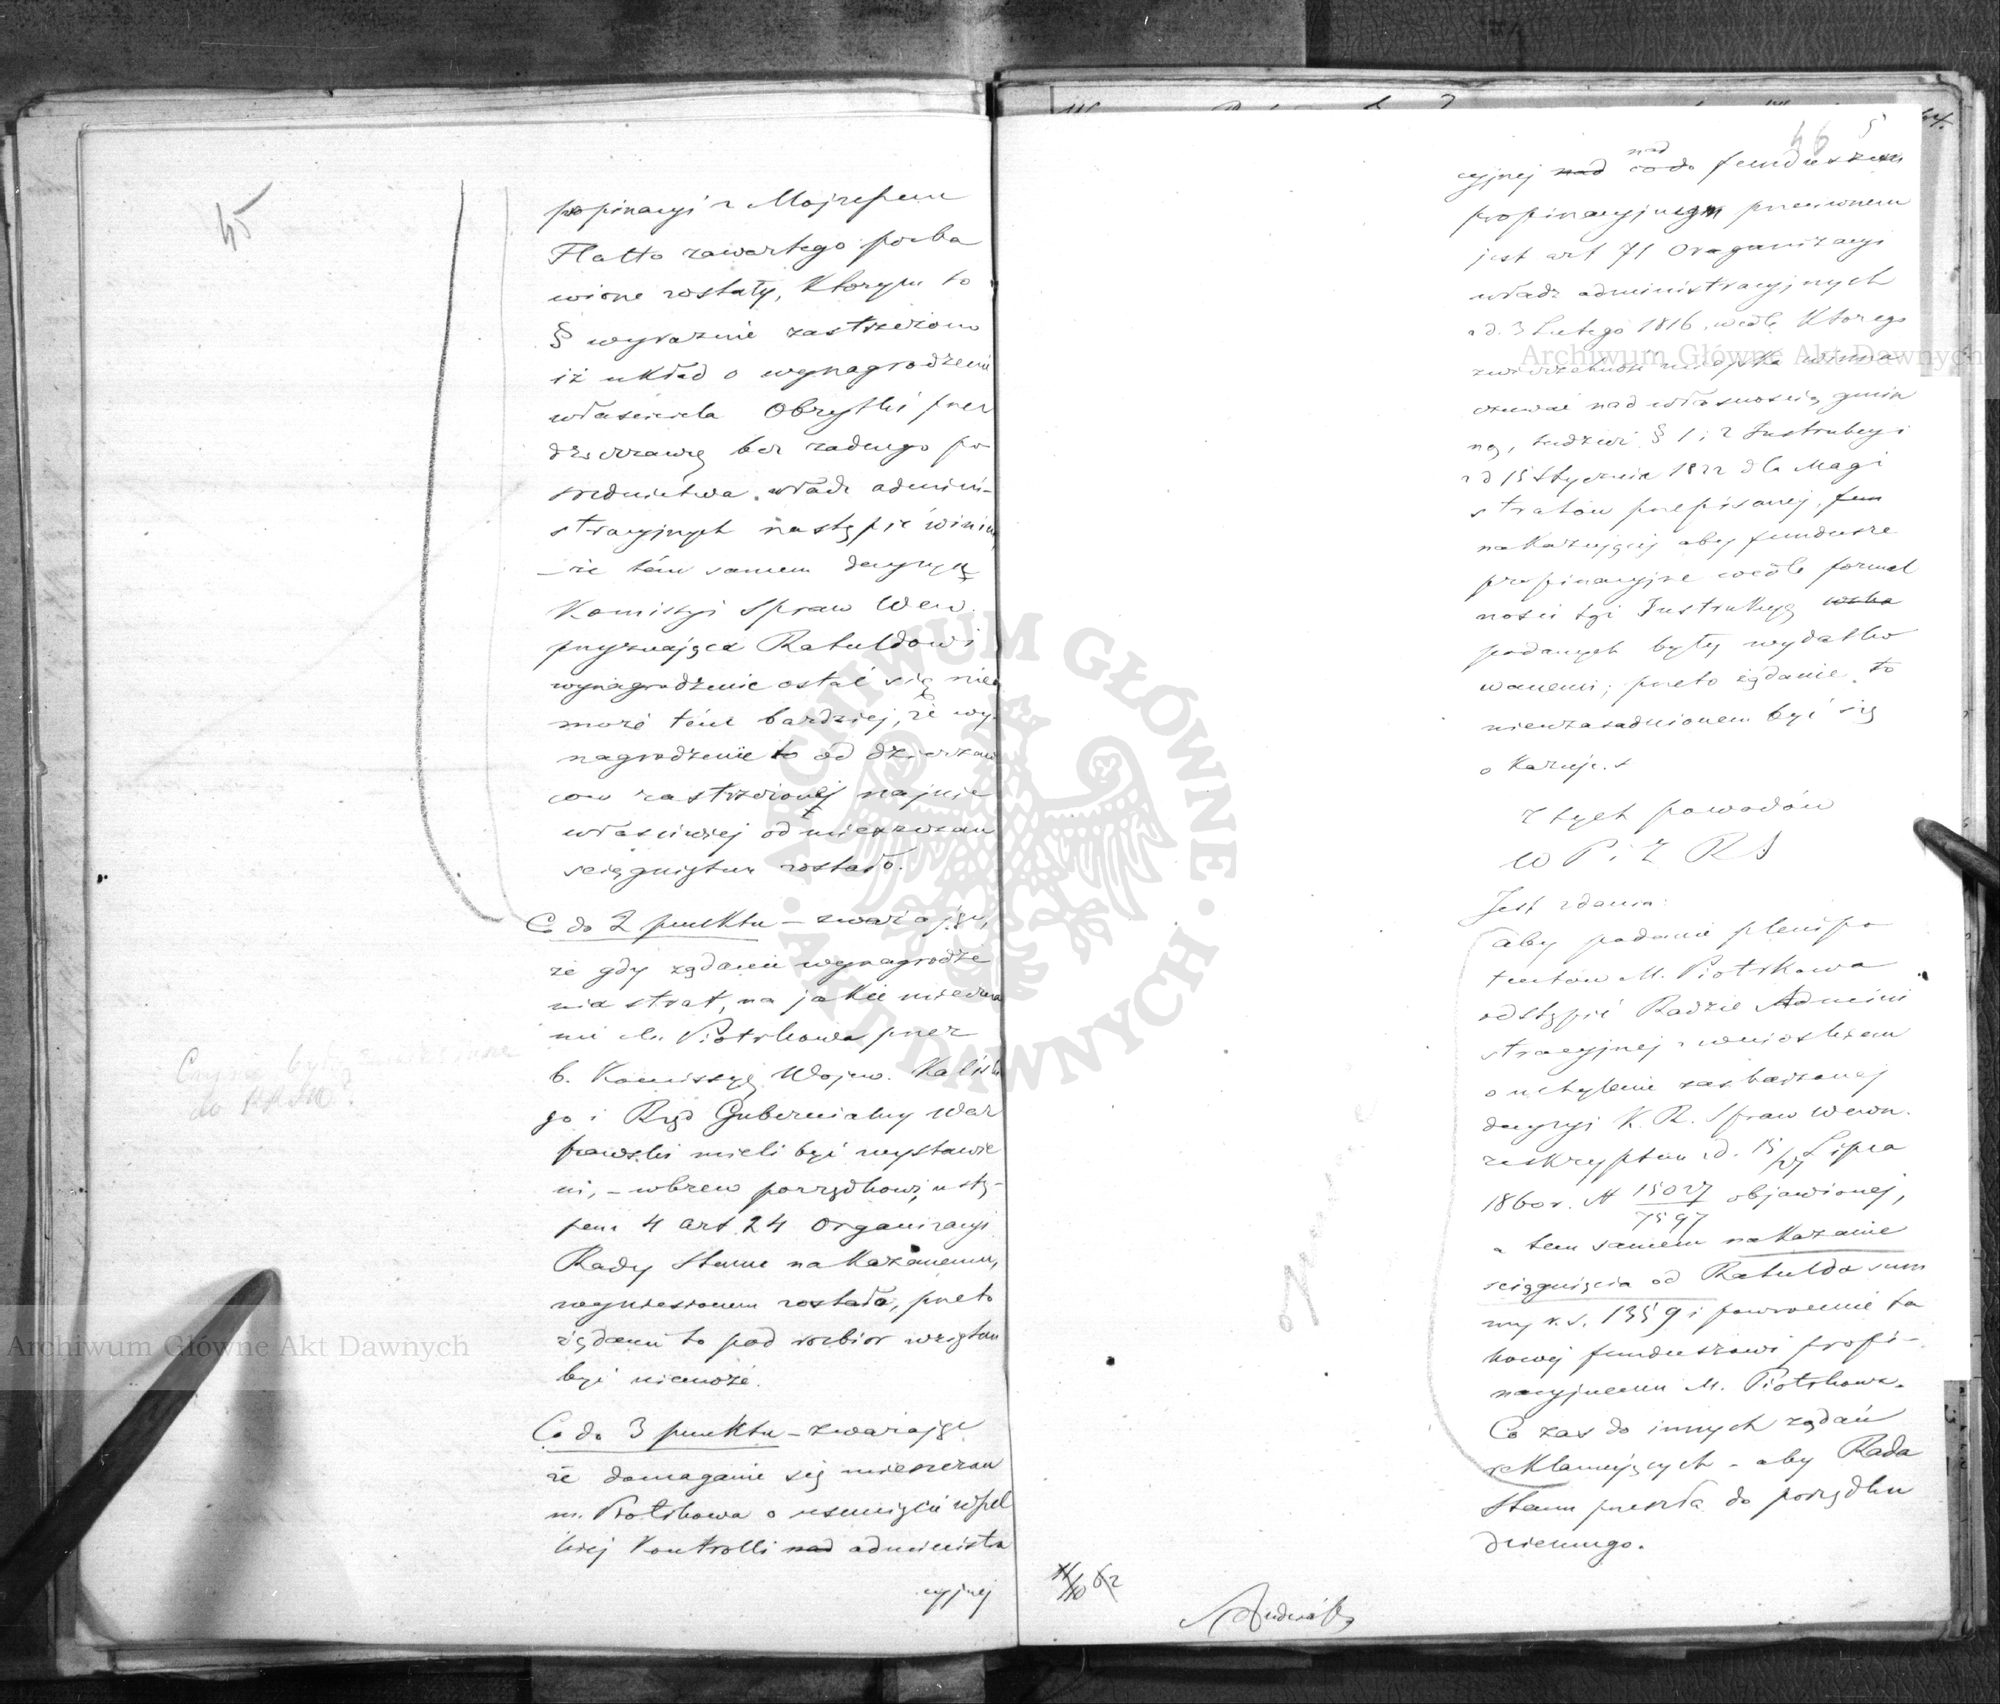 45
propinacyi z Mojzeszem
Flatto zawartego pozba
wione zostały, którym to
§ wyraźnie zastrzeżono
iż układ o wynagrodzenie
właściciela Obrytki przez
dzierżawcę bez żadnego po
średnictwa władz admini-
stracyjnych nastąpić winien
– że tém samem decyzya
Komissyi Spraw Wew.
przyznająca Ratuldowi
wynagrodzenie ostać się nie
może tém bardziej, że wy-
nagrodzenie to od dzierżaw
ców zastrzeżonej najnie
właściwiej od mieszczan
ściągniętem zostało.
Co do 2 punktu – zważając,
że gdy żądanie wynagrodze
nia strat, na jakie mieszcza
nie M. Piotrkowa przez
b. Komissyę Wojew. Kaliska
go i Rząd Gubernialny War
szawski mieli być wystawie
ni, – wbrew porządkowi, ustę-
pem 4 art 24 Organizacyi
Rady Stanu nakazanemu,
wyniesionem zostało, przeto
żądanie to pod rozbiór wziętem
być niemoże.
Co do 3 punktu – zważając
że domaganie się mieszczan
m. Piotrkowa o usunięcie wszel
kiej kontrolli nad administra
cyjnej
46
cyjnej nad co do funduszem
nad
propinacyjnym przeciwnem
jest art 71 Oraganizacyi
władz administracyjnych
z d. 3 Lutego 1816, wedle którego
zwierzchność miejska winna
czuwać nad własnością gmin
ną, tudzież § 1 i 2 Instrukcyi
z d 15 Stycznia 1822 dla Magi
stratów przepisanej, fun
nakazującej aby fundusze
propinacyjne wedle formal
ności tej Instrukcyą wska
podanych były wydatko
wanemi; przeto żądanie to
nieuzasadnionem być się
okazuje.
Z tych powodów
W P i Z R S
Jest zdania:
aby podanie plenipo
tentów M. Piotrkowa
odstąpić Radzie Admini
stracyjnej z wnioskiem
o uchylenie zaskarżonej
decyzyi K. R. Spraw Wewn.
reskryptem z d. 15/27 Lipca
1860 r. N 15027/7597 objawionej,
a tem samem nakazanie
ściągnięcia od Ratulda sum
my r.s. 1359 i powrócenie ta
kowej funduszowi propi-
nacyjnemu M. Piotrkowa.
Co zaś do innych żądań
reklamujących – aby Rada
Stanu przeszła do porządku
dziennego.
Archiwum Główne Akt Dawnych
Archiwum Główne Akt Dawnych
ARCHIWUM GŁÓWNE · AKT DAWNYCH ·